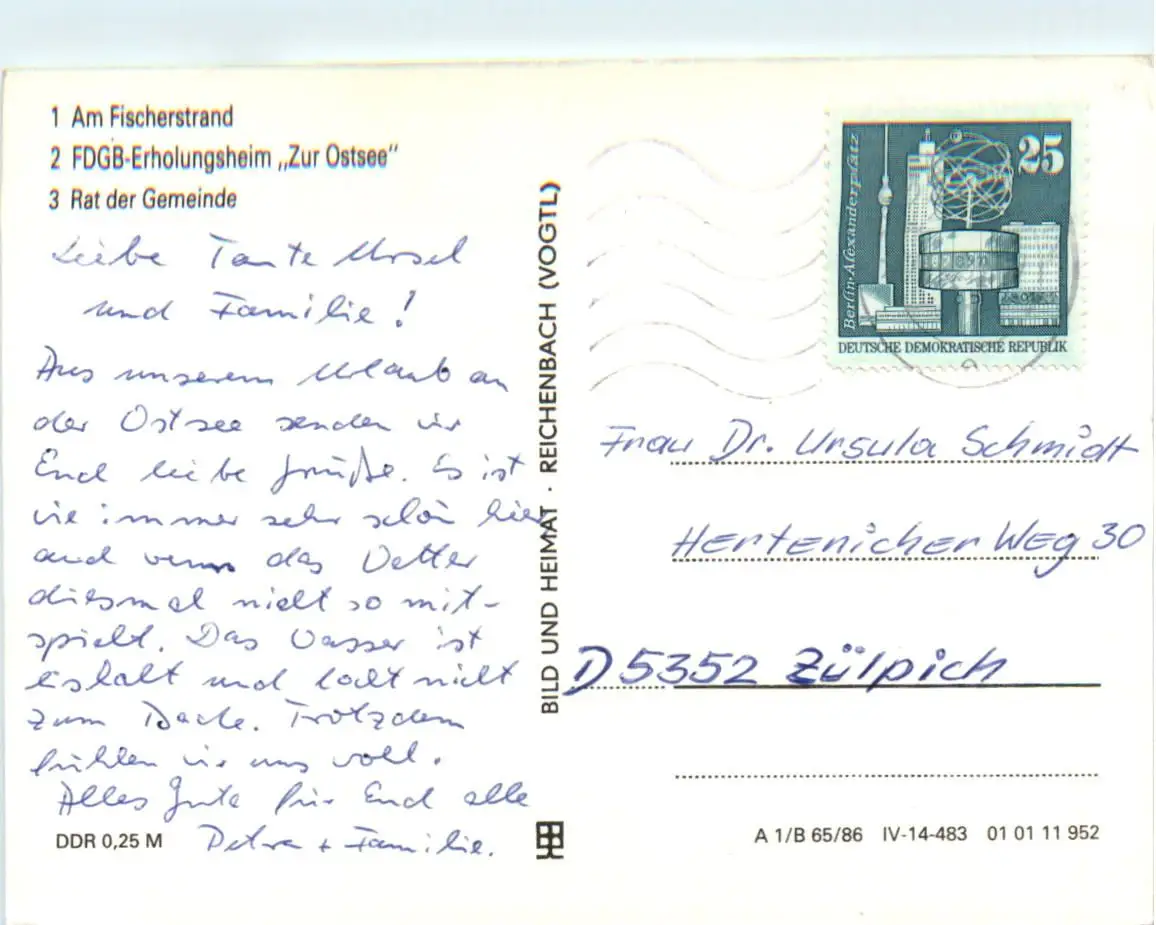 1 Am Fischerstrand
2 FDGB-Erholungsheim „Zur Ostsee“
3 Rat der Gemeinde
Liebe Tante Ursel
und Familie!
Aus unserem Urlaub an
der Ostsee senden wir
Euch liebe Grüße. Es ist
wie immer sehr schön hier
auch wenn das Wetter
diesmal nicht so mit-
spielt. Das Wasser ist
eiskalt und lockt nicht
zum Bade. Trotzdem
fühlen wir uns wohl.
Alles Gute für Euch alle
Petra + Familie.
DDR 0,25 M
BILD UND HEIMAT · REICHENBACH (VOGTL)
25
Berlin-Alexanderplatz
DEUTSCHE DEMOKRATISCHE REPUBLIK
Frau Dr. Ursula Schmidt
Hertenicher Weg 30
D 5352 Zülpich
A 1/B 65/86 IV-14-483 01 01 11 952